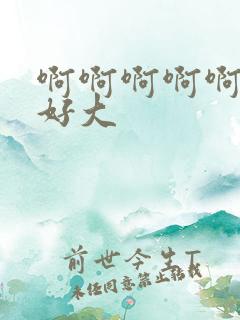 啊啊啊啊啊
好大
前世今生T
未经同意禁止转载